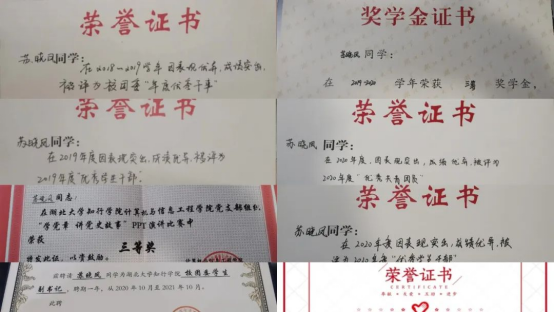 荣誉证书
苏晓凤同学:
在2018-2019学年 因表现优异、成绩突出,
被评为校团委“年度优秀干事”
荣誉证书
苏晓凤同学:
在2019年度因表现突出,成绩优异,被评为
2019年度“优秀学生干部”
苏晓凤同志:
在湖北大学知行学院计算机与信息工程学院党支部组织
“学党章 讲党史故事”PPT演讲比赛中
荣获
三等奖
特发此证,以资鼓励。
兹聘请 苏晓凤 同学为湖北大学知行学院 校团委学生
副书记,聘期一年,从2020年10月至2021年10月。
此聘
奖学金证书
苏晓凤同学:
在 2019-2020 学年荣获 三等 奖学金,
荣誉证书
苏晓凤同学:
在2020年度,因表现突出,成绩优异,被评为
2020年度“优秀共青团员”
荣誉证书
苏晓凤同学:
在2020年度因表现突出,成绩优异,被
评为2020年度“优秀学生干部”
荣誉证书
CERTIFICATE